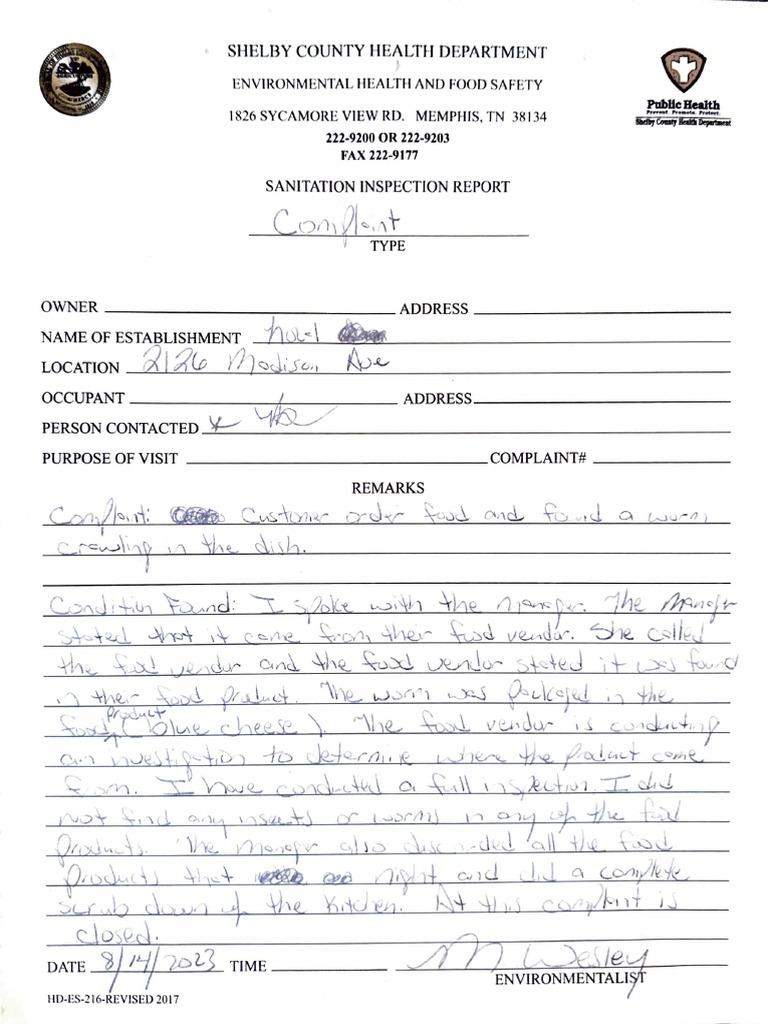 SHELBY COUNTY HEALTH DEPARTMENT
ENVIRONMENTAL HEALTH AND FOOD SAFETY
1826 SYCAMORE VIEW RD. MEMPHIS, TN 38134
222-9200 OR 222-9203
FAX 222-9177
Public Health
Prevent. Promote. Protect.
Shelby County Health Department
SANITATION INSPECTION REPORT
Complaint
TYPE
OWNER ADDRESS
NAME OF ESTABLISHMENT
LOCATION 2126 Madison Ave
OCCUPANT ADDRESS
PERSON CONTACTED x
PURPOSE OF VISIT COMPLAINT#
REMARKS
Complaint: Customer order food and found a worm
crawling in the dish.
Condition Found: I spoke with the manager. The Manager
stated that it came from their food vendor. She called
the food vendor and the food vendor stated it was found
in their food product. The worm was packaged in the
food product (blue cheese). The food vendor is conducting
an investigation to determine where the product came
from. I have conducted a full inspection. I did
not find any insects or worms in any of the food
products. The manager also discarded all the food
products that night and did a complete
scrub down of the kitchen. At this complaint is
closed.
DATE 8/14/2023 TIME M Wesley
ENVIRONMENTALIST
HD-ES-216-REVISED 2017